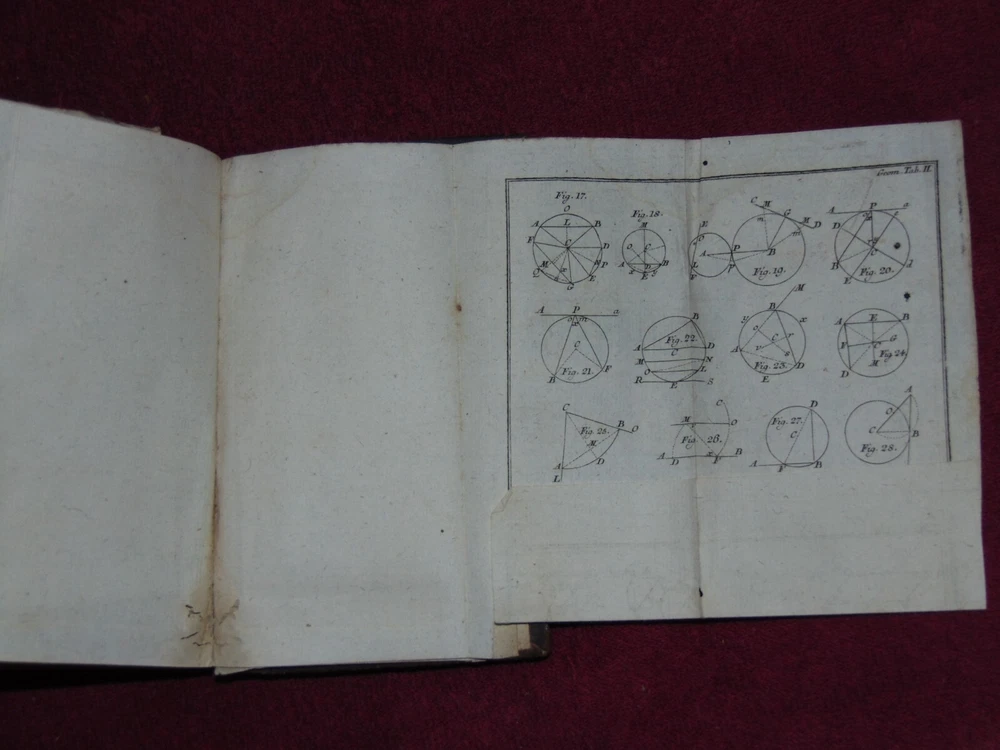 Geom. Tab. II.
Fig. 17.
O
A L B
F C D
M P
Q E
G
Fig. 18.
M
O C
A D B
E
E
D
A P B
C M G M D
m m
Fig. 19.
A P a
D
C
B d
E
Fig. 20.
A P a
o m
C
B F
Fig. 21.
B
Fig. 22.
A C D
M N
O L
R E S
M
B
y x
o C r
A v s D
Fig. 23.
E
A E B
F C G
Fig. 24.
D M
C
Fig. 25.
B O
M
A D
L
C
M y O
Fig. 26.
A D x F B
D
Fig. 27.
C
A F B
A
O
C B
Fig. 28.